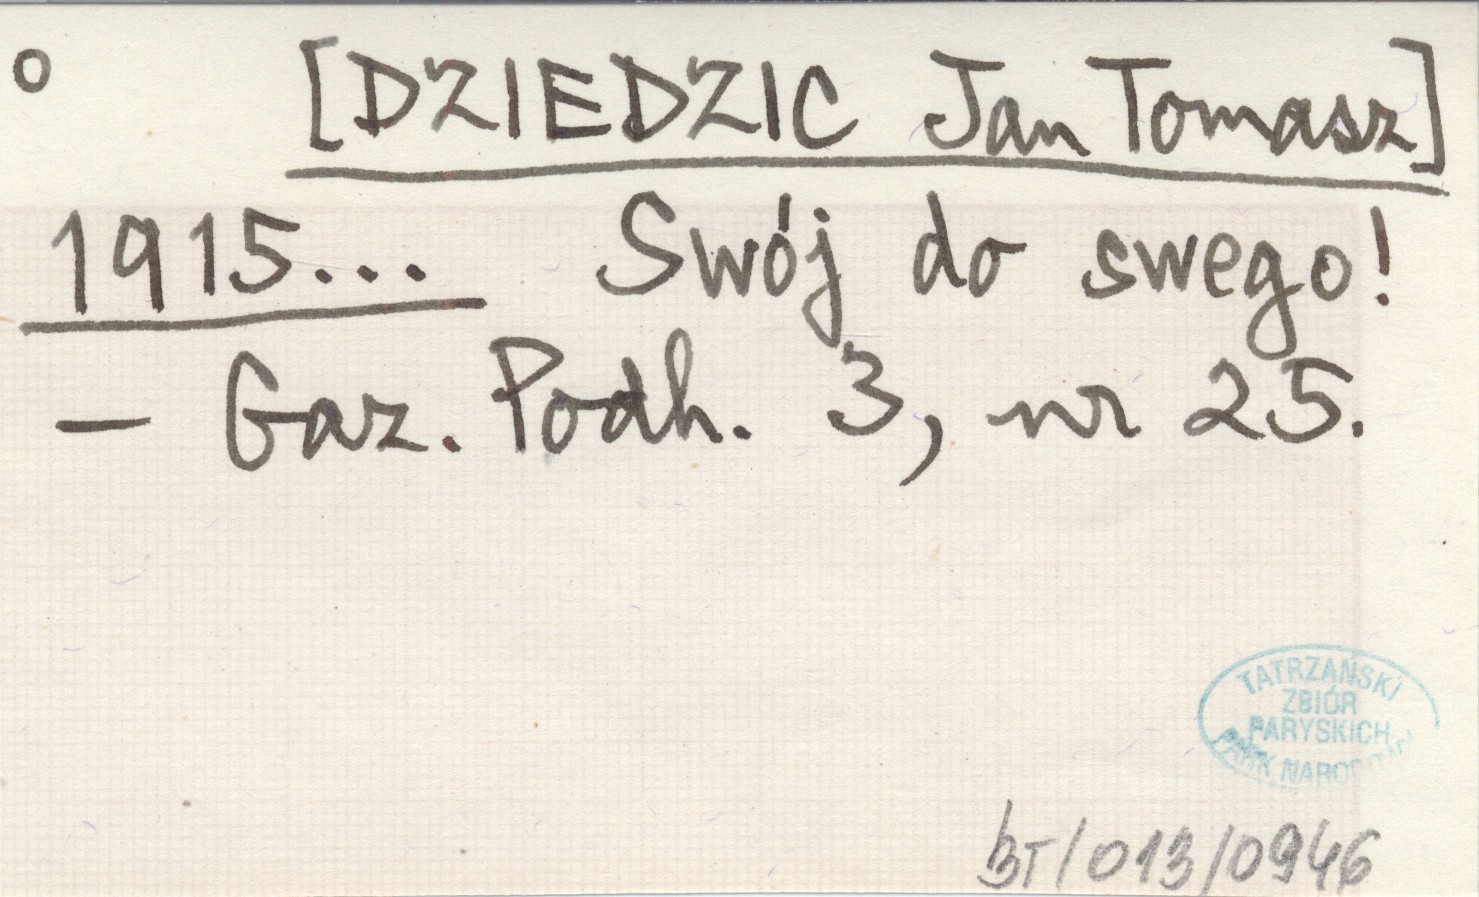 ° [DZIEDZIC Jan Tomasz]
1915... Swój do swego!
— Gaz. Podh. 3, nr 25.
TATRZAŃSKI
ZBIÓR
PARYSKICH
PARK NARODOWY
BT/013/0946